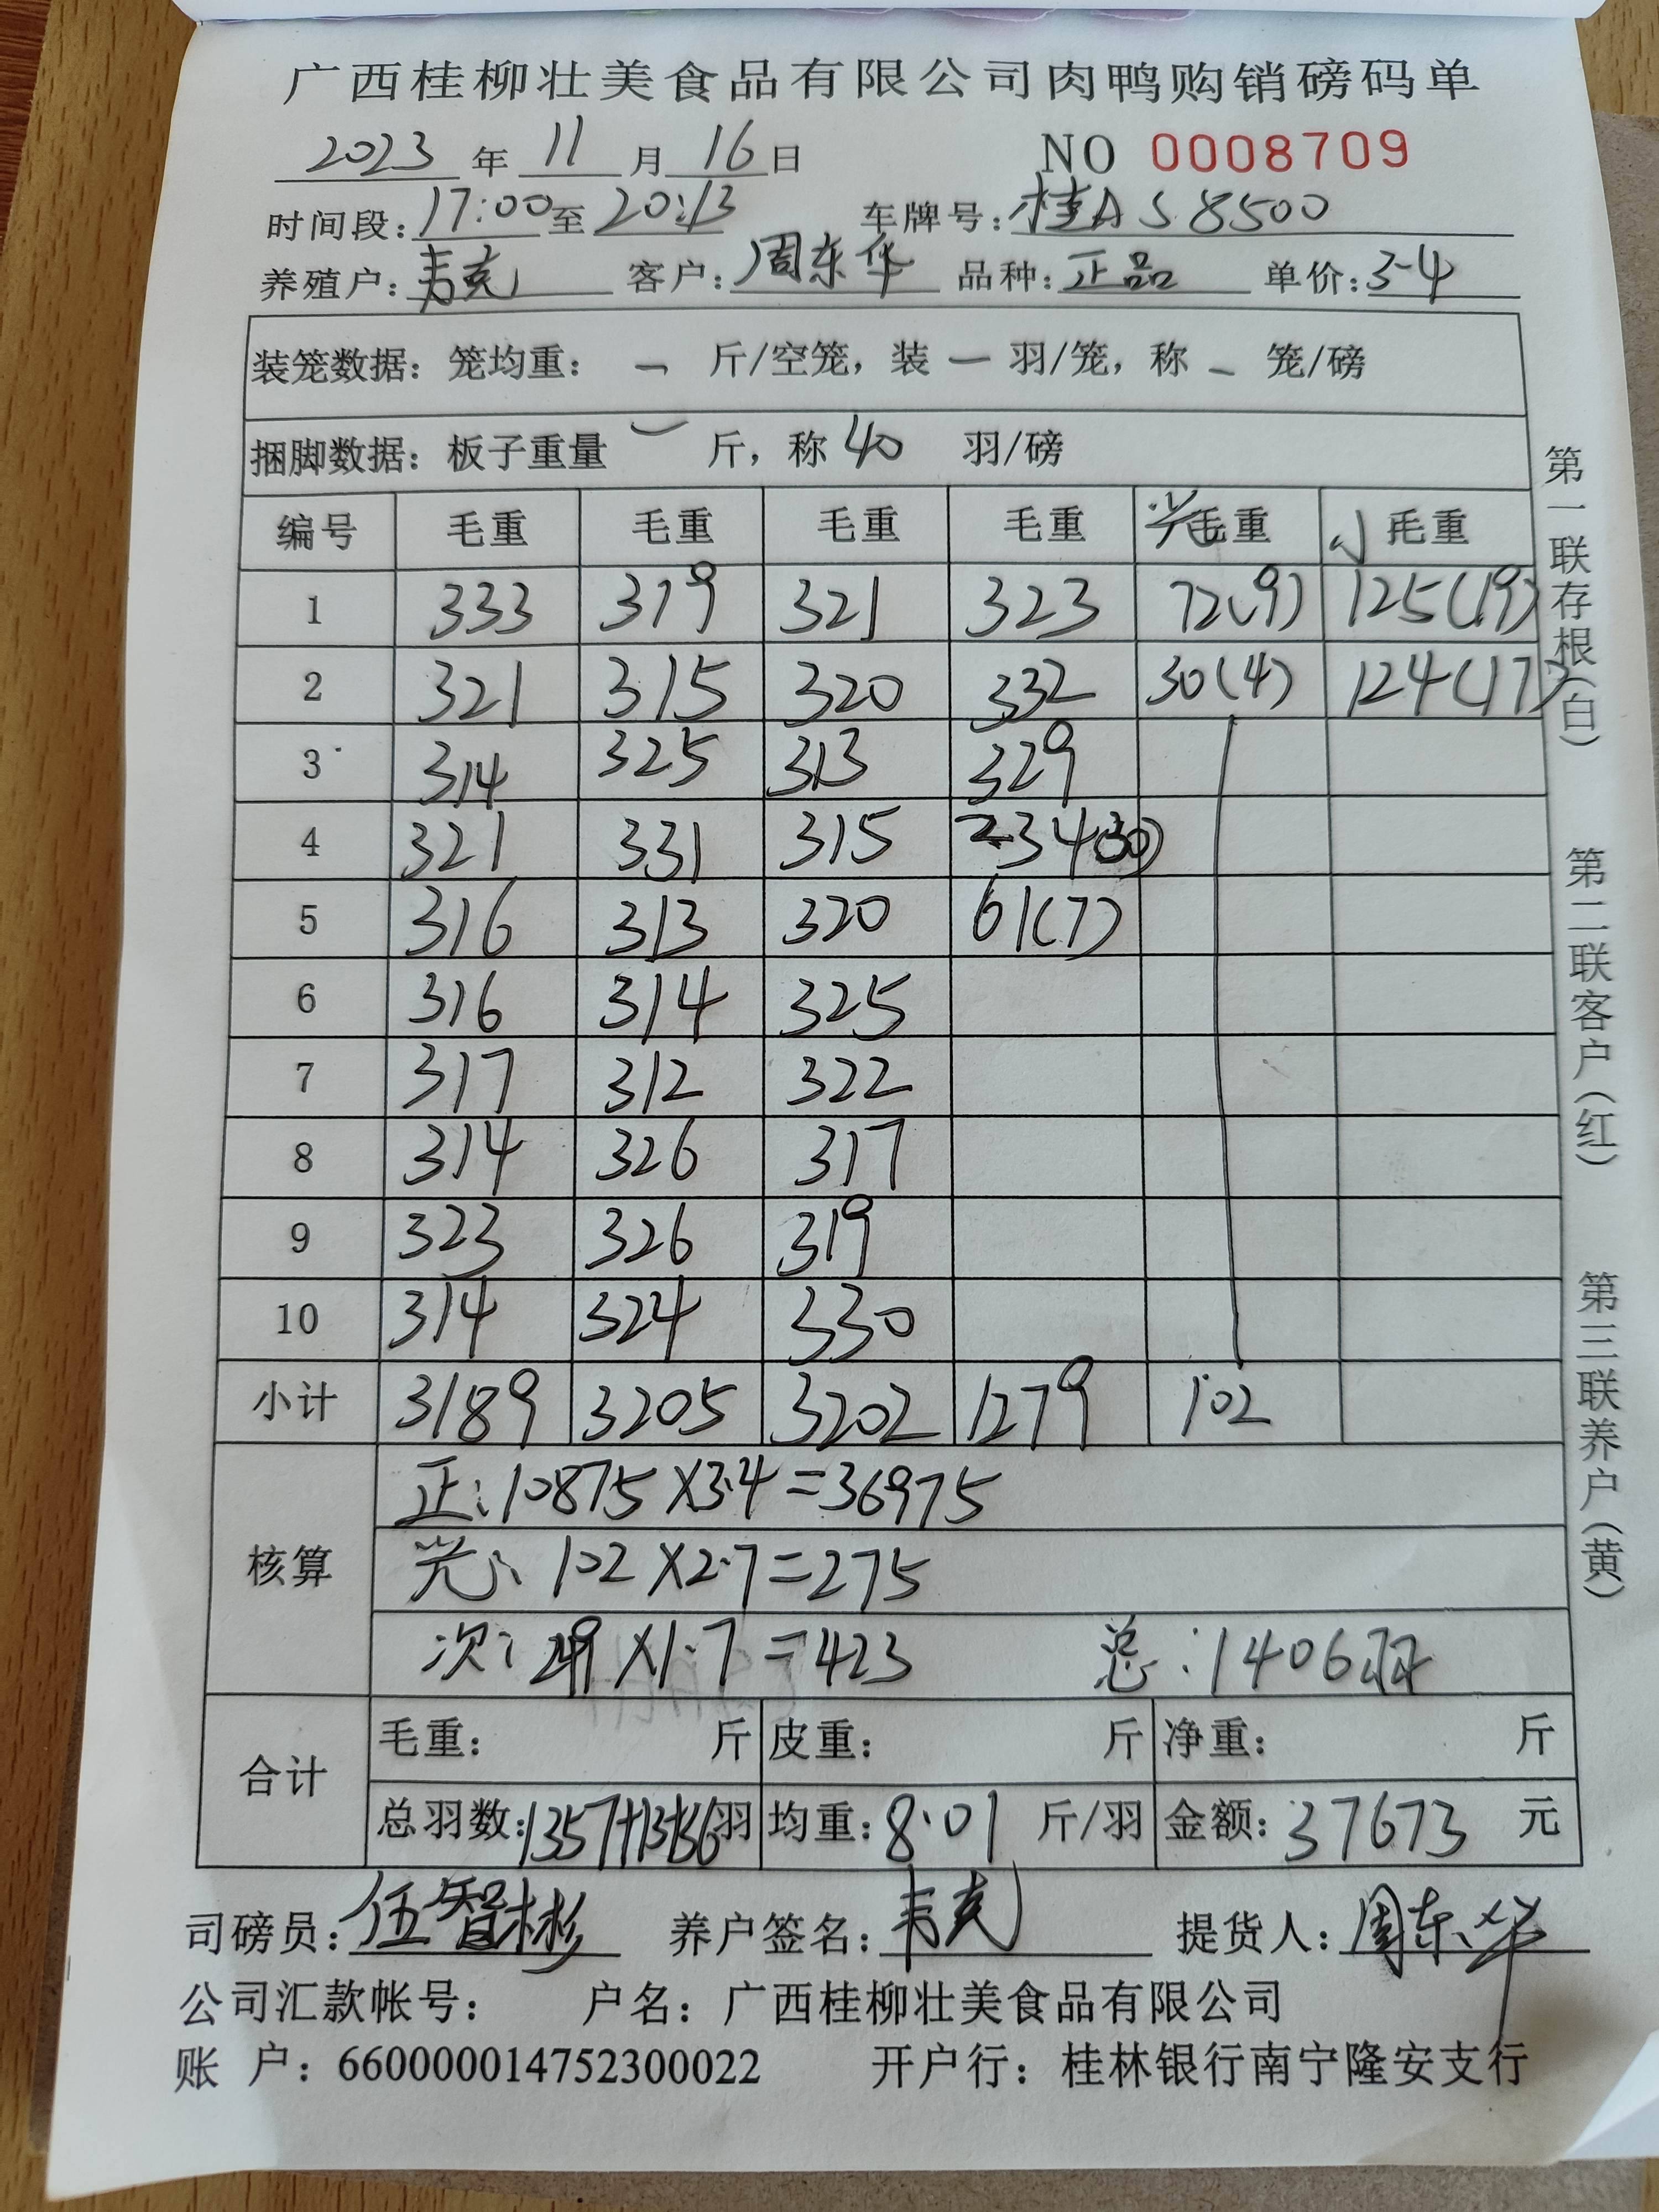 广西桂柳壮美食品有限公司肉鸭购销磅码单
2023 年 11 月 16 日 NO 0008709
时间段: 17:00 至 20:13 车牌号: 桂A S8500
养殖户: 韦克 客户: 周东华 品种: 正品 单价: 3-4
装笼数据: 笼均重: - 斤/空笼, 装 - 羽/笼, 称 - 笼/磅
捆脚数据: 板子重量 - 斤, 称 40 羽/磅
编号 毛重 毛重 毛重 毛重 光毛重 小毛重
1 333 319 321 323 72(9) 125(19)
2 321 315 320 332 30(4) 124(17)
3 314 325 313 329
4 321 331 315 234(30)
5 316 313 320 61(7)
6 316 314 325
7 317 312 322
8 314 326 317
9 323 326 319
10 314 324 330
小计 3189 3205 3202 1279 102
核算
正: 10875×3.4=36975
光: 102×2.7=275
次: 249×1.7=423 总:1406羽
合计
毛重: 斤 皮重: 斤 净重: 斤
总羽数: 1357+13+36 羽 均重: 8.01 斤/羽 金额: 37673 元
司磅员: 伍智彬 养户签名: 韦克 提货人: 周东华
公司汇款帐号: 户名: 广西桂柳壮美食品有限公司
账 户: 660000014752300022 开户行: 桂林银行南宁隆安支行
第一联存根(白) 第二联客户(红) 第三联养户(黄)